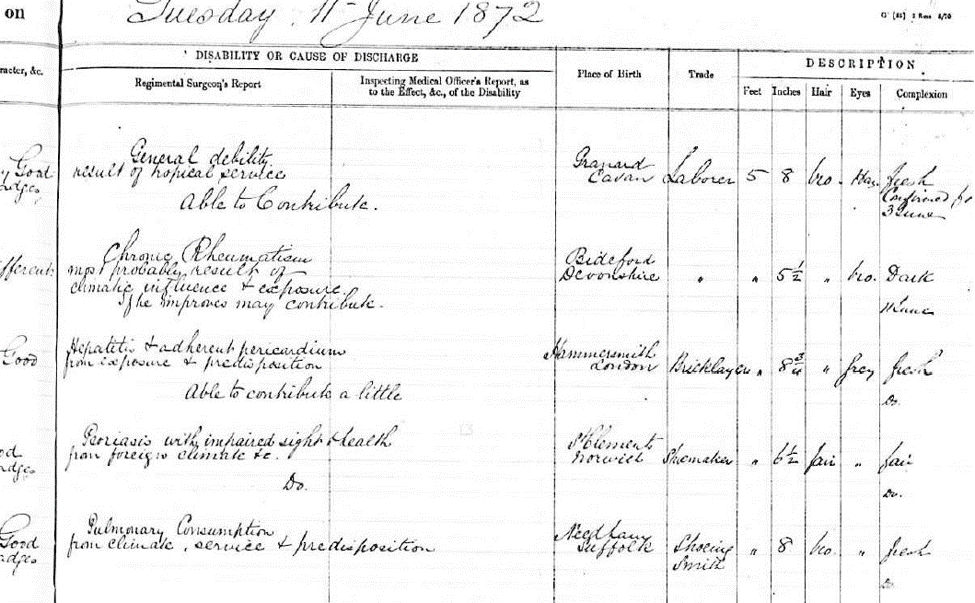 on
Tuesday 11 June 1872
DISABILITY OR CAUSE OF DISCHARGE
Place of Birth
Trade
DESCRIPTION
racter, &c.
Regimental Surgeon's Report
Inspecting Medical Officer's Report, as
to the Effect, &c., of the Disability
Feet Inches Hair Eyes Complexion
y Good
adges
General debility
result of tropical service
Able to Contribute.
Granard
Cavan
Laborer 5 8 bro. Haz. fresh
Confirmed
3 June
ifferent
Chronic Rheumatism
most probably result of
climatic influence & exposure
If he improves may contribute.
Bideford
Devonshire
" " 5 1/2 " bro. Dark
11 June
Good
Hepatitis & adherent pericardium
from exposure & predisposition
Able to contribute a little
Hammersmith
London
Bricklayer " 8 3/4 " Grey fresh
Do.
od
adges
Psoriasis with impaired sight & health
from foreign climate &c.
Do.
St Clements
Norwich
Shoemaker " 6 1/2 fair " fair
Do.
Good
adges
Pulmonary Consumption
from climate, service & predisposition
Needham
Suffolk
Shoeing
Smith
" 8 bro. " fresh
Do.